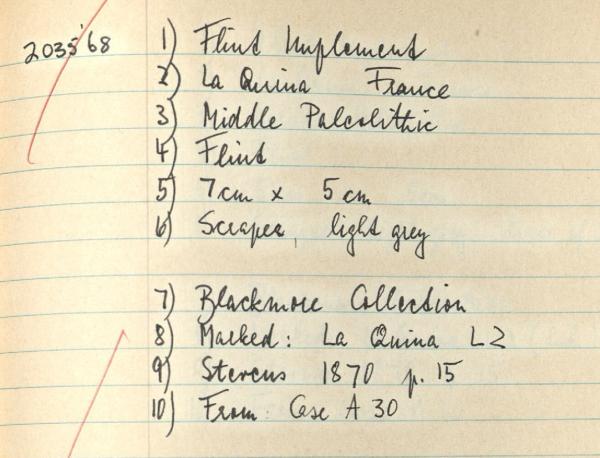 2035'68 1) Flint Implement
2) La Quina France
3) Middle Paleolithic
4) Flint
5) 7cm x 5cm
6) Scraper, light grey
7) Blackmore Collection
8) Marked: La Quina L2
9) Stevens 1870 p. 15
10) From: Case A 30